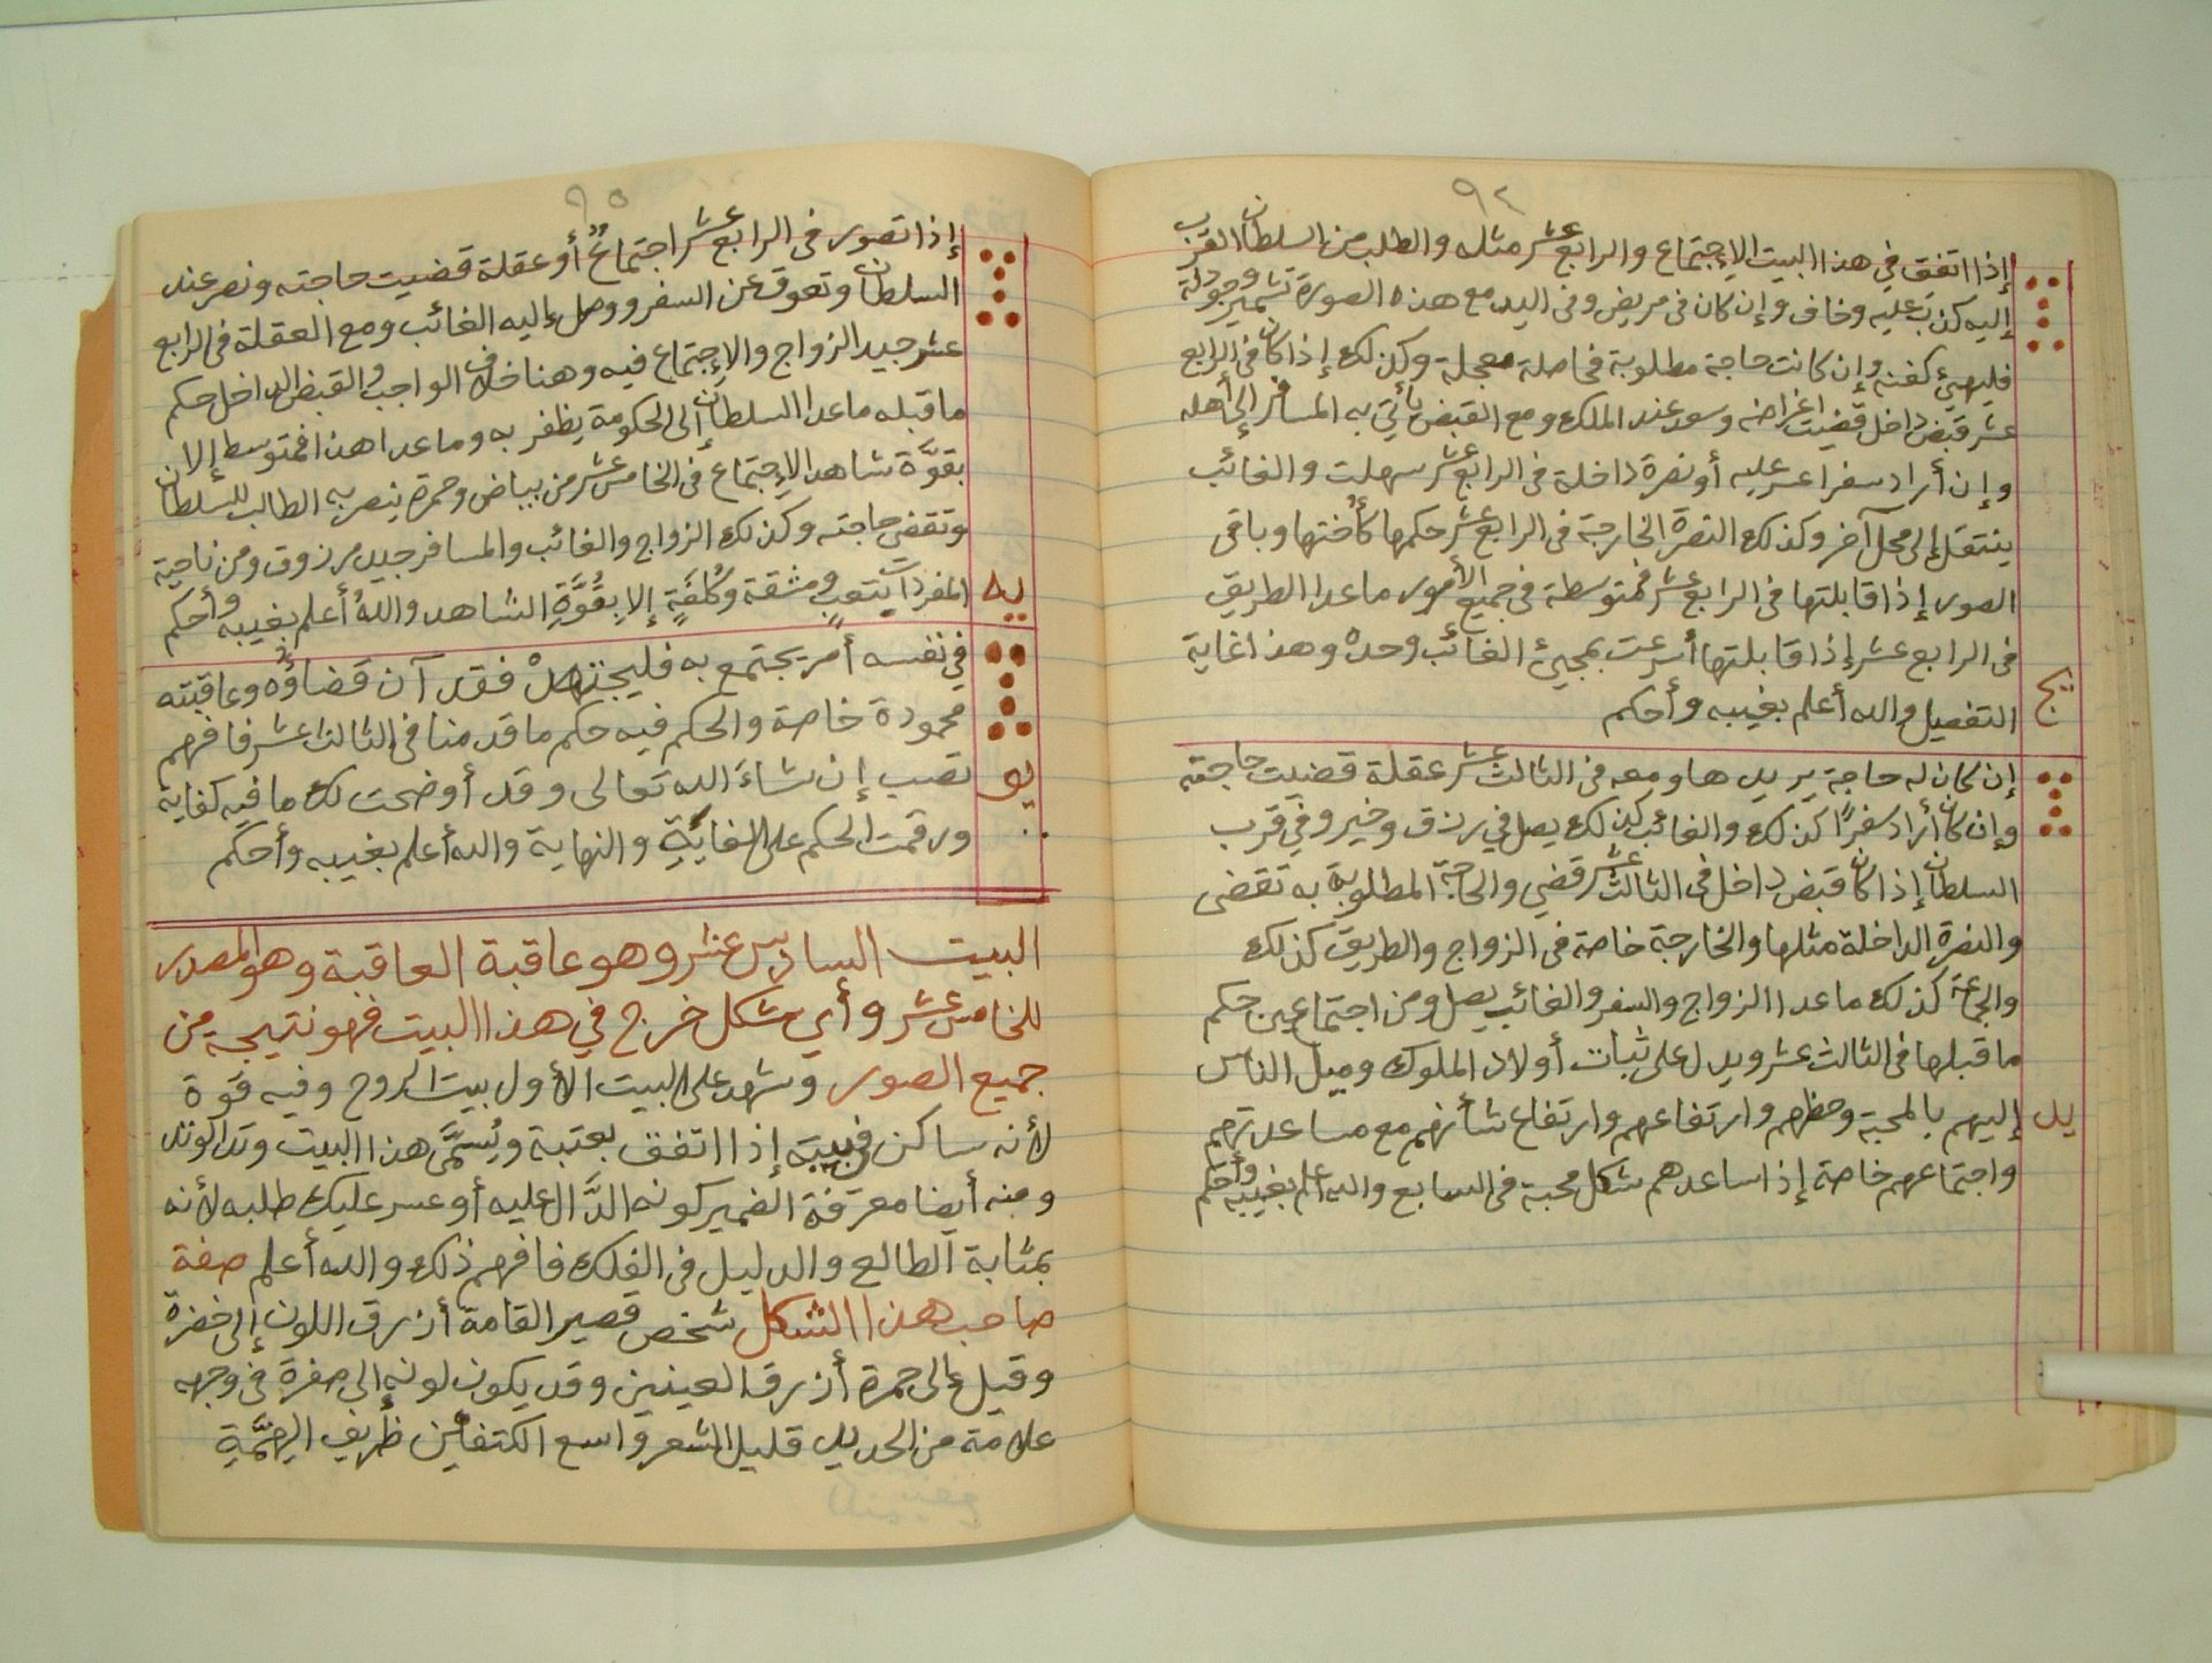 ٩٤
إذا اتفق في هذا البيت الإجتماع والرابع عشر مثله والطلب من السلطان القرب
إليه كذب عليه وخاف وإن كان في مريض وفى اليد مع هذه الصورة
فليهيئ كفنه وإن كانت حاجة مطلوبة فحاصلة معجلة وكذلك إذا كان فى الرابع
عشر قبض داخل قضيت اغراضه وسعد عند الملك ومع القبض يأتي به المسافر إلى أهله
وإن أراد سفرا عسر عليه أو نصرة داخلة فى الرابع عشر سهلت والغائب
ينتقل إلى محل آخر وكذلك النصرة الخارجة فى الرابع عشر حكمها كأختها وباقى
الصور إذا قابلتها فى الرابع عشر فمتوسطة فى جميع الأمور ماعدا الطريق
فى الرابع عشر إذا قابلتها أسرعت بمجيئ الغائب وحده وهذا غاية
التفصيل والله أعلم بغيبه وأحكم
يج
إن كان له حاجة يريدها ومعه فى الثالث عشر عقلة قضيت حاجته
وإن كان أراد سفرًا كذلك والغائب كذلك يصل في رزق وخير وفي قرب
السلطان إذا كان قبض داخل فى الثالث عشر قضي والحاجة المطلوبة به تقضى
والنصرة الداخلة مثلها والخارجة خاصة فى الزواج والطريق كذلك
والجماعة كذلك ماعدا الزواج والسفر والغائب يصل ومن اجتماعين حكم
ماقبلها فى الثالث عشر ويدل على ثبات أولاد الملوك وميل الناس
يد إليهم بالمحبة وحظهم وارتفاعهم وارتفاع شأنهم مع مساعدتهم
واجتماعهم خاصة إذا ساعدهم شكل محبة فى السابع والله أعلم بغيبه وأحكم
٩٥
إذا تصور فى الرابع عشر اجتماعٌ أو عقلة قضيت حاجته ونصر عند
السلطان وتعوق عن السفر ووصل إليه الغائب ومع العقلة فى الرابع
عشر جيد الزواج والإجتماع فيه وهنا خلاف الواجب والقبض الداخل حكم
ماقبله ماعدا السلطان إلى الحكومة يظفر به وماعدا هذا فمتوسط إلا
بقوَّة شاهد الإجتماع فى الخامس عشر من بياض وحمرة ينصر به الطالب للسلطان
وتقضى حاجته وكذلك الزواج والغائب والمسافر جيد مرزوق ومن ناحية
يه المفردات بتعبٍ ومشقة وكُلفَةٍ إلا بِقُوَّةِ الشاهد واللهُ أعلم بغيبه وأحكم
في نفسه أمر يجتمع به فليجتهدْ فقد آن قضاؤُه وعاقبته
محمودة خاصة والحكم فيه حكم ماقدمنا فى الثالث عشر فافهم
يو تصب إن شاءَ الله تعالى وقد أوضحت لك ما فيه كفاية
ورقمت الحكم على الغايَةِ والنهاية والله أعلم بغيبه وأحكم
البيت السادس عشر وهو عاقبة العاقبة وهو المصدر
للخامس عشر وأي شكل خرج في هذا البيت فهو نتيجة من
جميع الصور وشهد على البيت الأول بيت الروح وفيه قوة
لأنه ساكن في بيته إذا اتفق بعتبة ويُسَمَّى هذا البيت وتد الوتد
ومنه أيضا معرفة الضمير كونه الدَّال عليه أو عسر عليك طلبه لأنه
بمثابة الطالع والدليل فى الفلك فافهم ذلك والله أعلم صفة
صاحب هذا الشكل شخص قصير القامة أزرق اللون إلى خضرة
وقيل إلى حمرة أزرق العينين وقد يكون لونه إلى صفرة فى وجهه
علامة من الحديد قليل الشعر واسع الكتفين ظريف